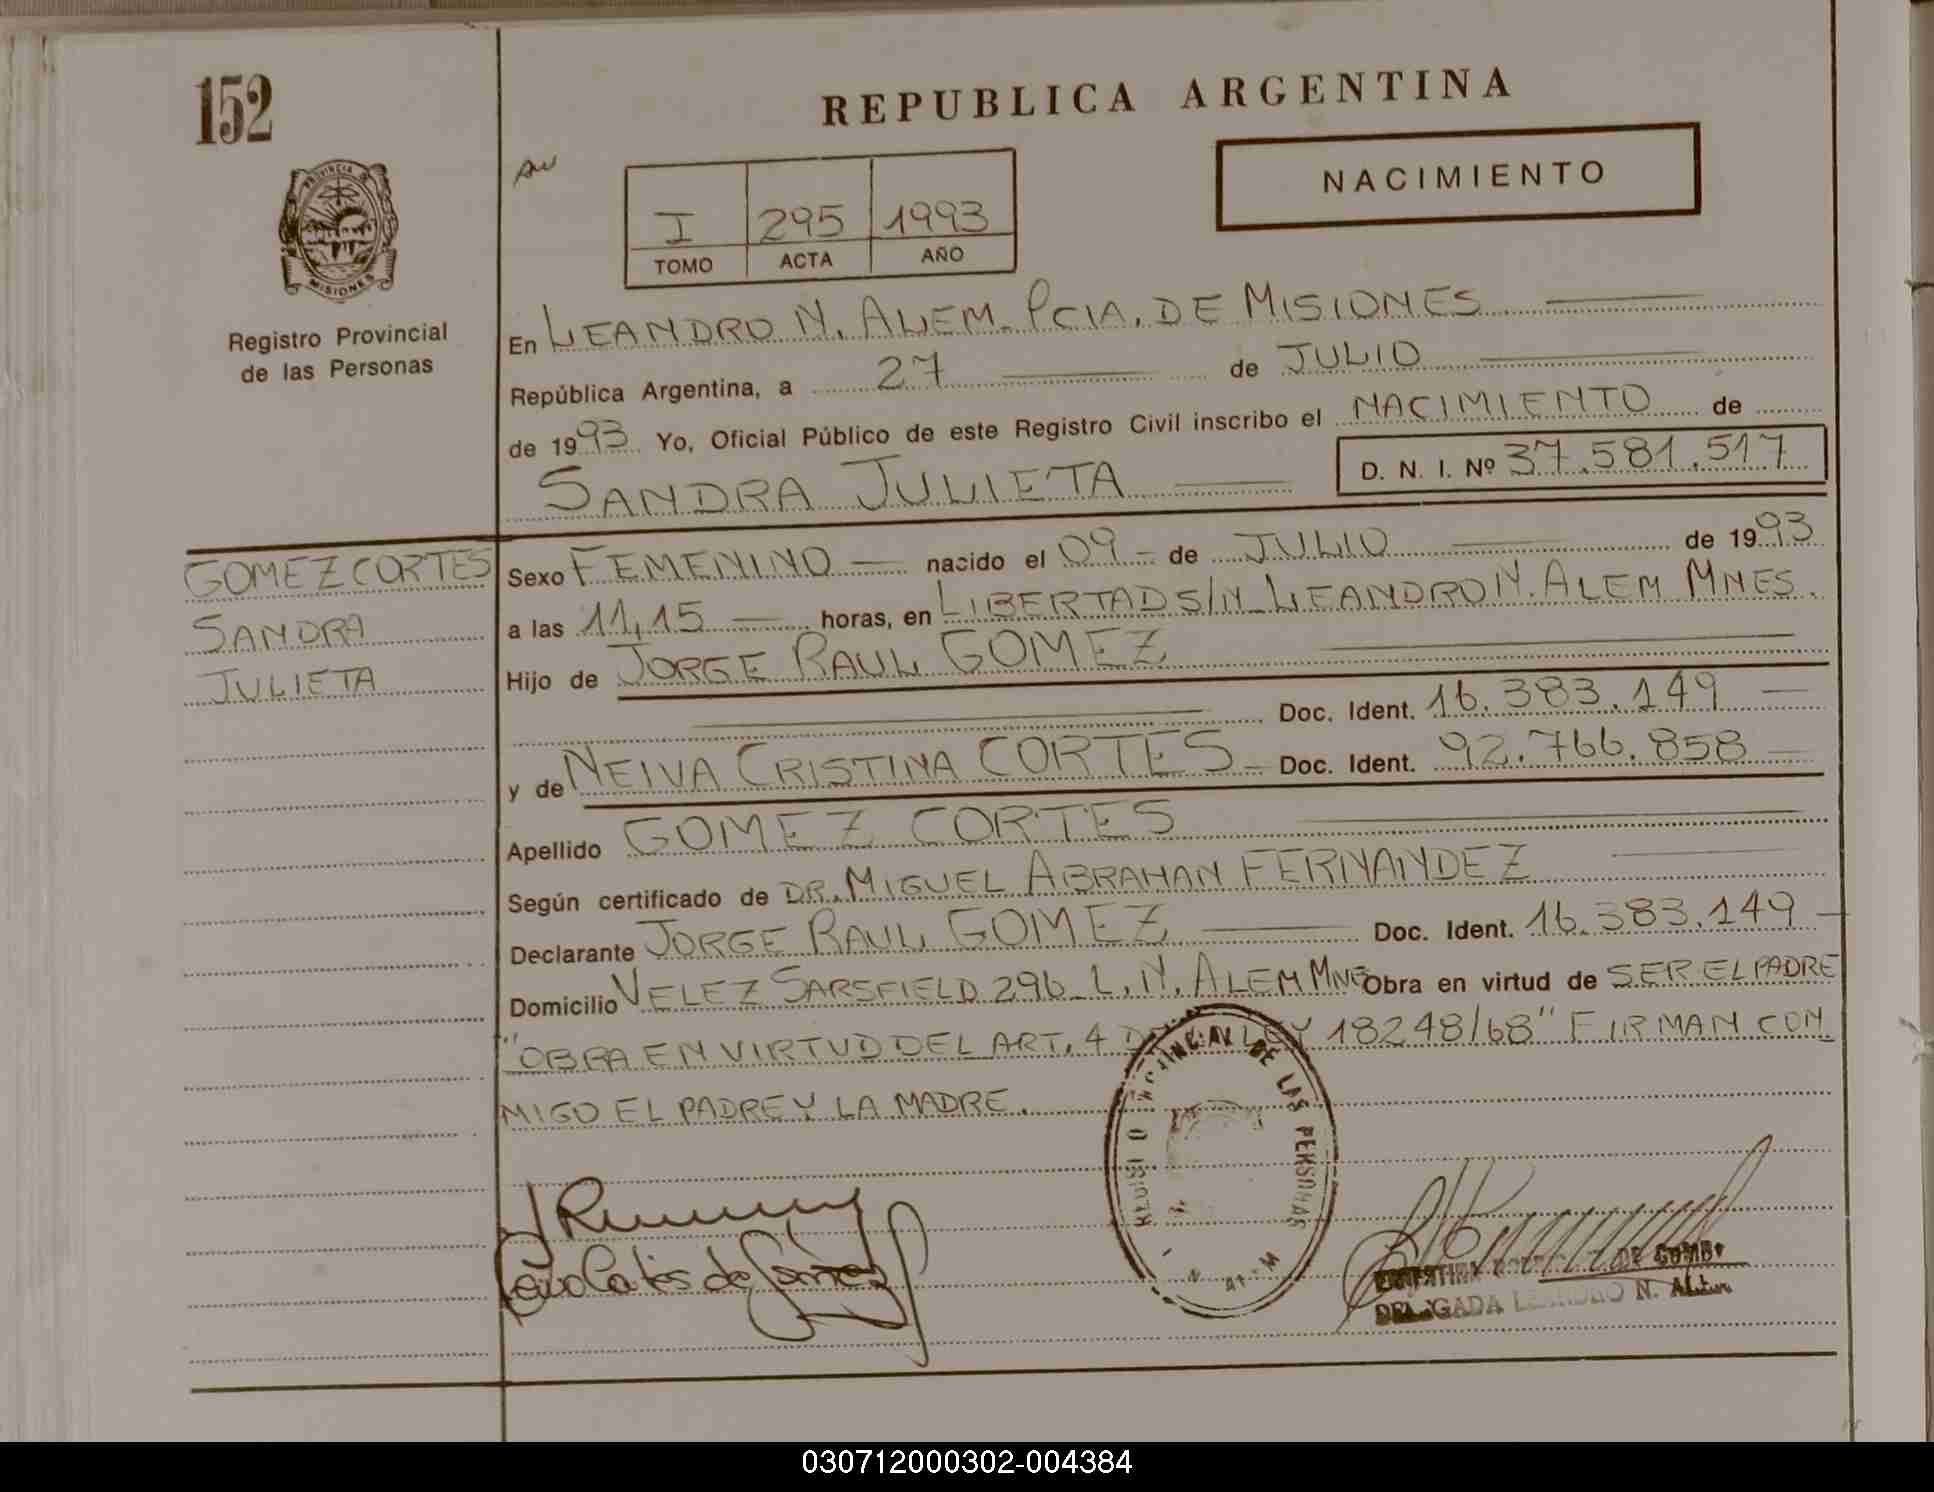 152
REPUBLICA ARGENTINA
NACIMIENTO
PROVINCIA DE
MISIONES
I 295 1993
TOMO ACTA AÑO
Registro Provincial
de las Personas
En LEANDRO N. ALEM. PCIA. DE MISIONES
República Argentina, a 27 de JULIO
de 1993 Yo, Oficial Público de este Registro Civil inscribo el NACIMIENTO de
SANDRA JULIETA D. N. I. Nº 37.581.517
GOMEZ CORTES
SANDRA
JULIETA
Sexo FEMENINO nacido el 09 de JULIO de 1993
a las 11,15 horas, en LIBERTAD S/N LEANDRO N. ALEM MNES.
Hijo de JORGE RAUL GOMEZ
Doc. Ident. 16.383.149
y de NEIVA CRISTINA CORTES Doc. Ident. 92.766.858
Apellido GOMEZ CORTES
Según certificado de DR. MIGUEL ABRAHAN FERNANDEZ
Declarante JORGE RAUL GOMEZ Doc. Ident. 16.383.149
Domicilio VELEZ SARSFIELD 296 L. N. ALEM MNE Obra en virtud de SER EL PADRE
"OBRA EN VIRTUD DEL ART. 4 DE LA LEY 18248/68" FIRMAN CON
MIGO EL PADRE Y LA MADRE.
DE LAS PERSONAS
DE GOMEZ
N. ALEM
030712000302-004384